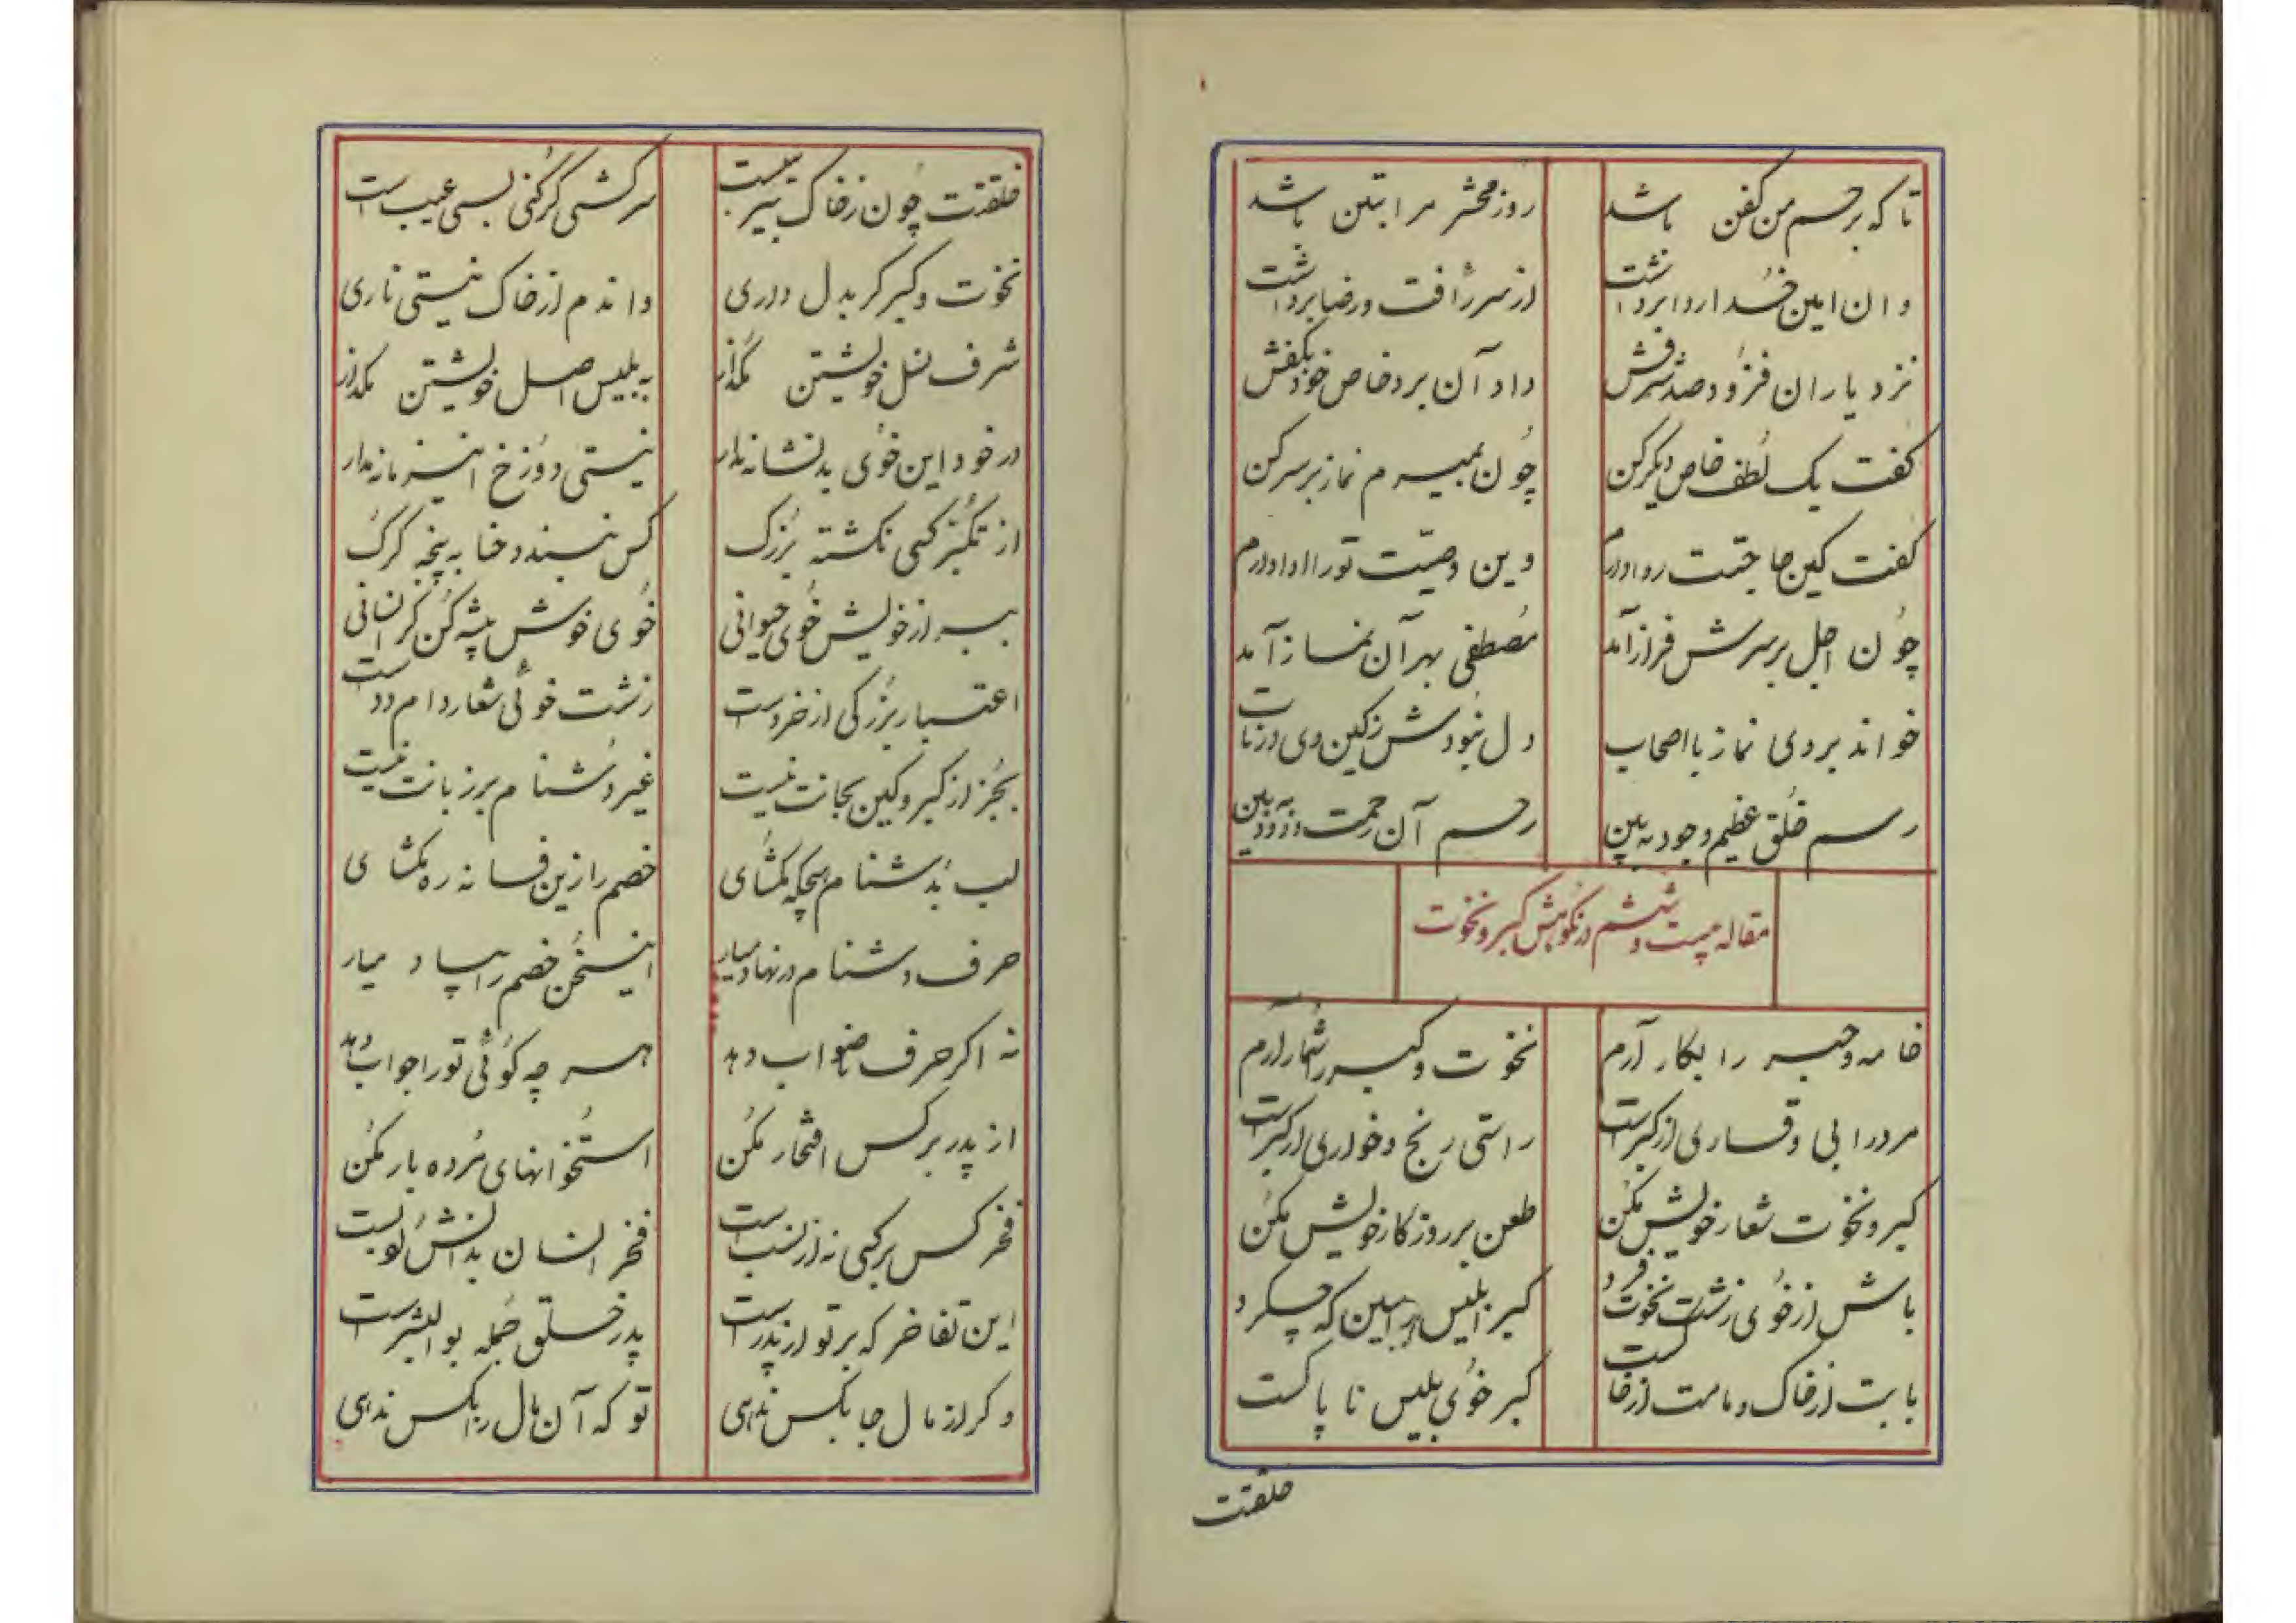 تا که بر جسم من کفن باشد روز محشر مرا بتن باشد
وان امین خدا ردا برداشت از سر رأفت و رضا برداشت
نزد یاران فزود صد شرفش داد آن برد خاص خود بکفش
گفت یک لطف خاص دیگر کن چون بمیرم نماز بر سر کن
گفت کین حاجتت روا دارم وین وصیت تو را ادا دارم
چون اجل بر سرش فراز آمد مصطفی بهر آن نماز آمد
خواند بر وی نماز با اصحاب دل نبودش ز کین وی در تاب
رسم خلق عظیم وجود به بین رحم آن رحمت ودود به بین
مقاله بیست و ششم در نکوهش کبر و نخوت
خامه و حبر را بکار آرم نخوت و کبر را شمار آرم
مرد را بی وقاری از کبر است راستی رنج و خواری از کبر است
کبر و نخوت شعار خویش مکن طعن بر روزگار خویش مکن
باش از خوی زشت نخوت فرد کبر ابلیس را ببین که چه کرد
بابت از خاک و مامت از خاکست کبر خوی بلیس ناپاکست
خلقتت
خلقتت چون ز خاک بیز بیست سرکشی گر کنی بسی عیب است
نخوت و کبر گر بدل داری دانم از خاک نیستی ناری
شرف نسل خویشتن مگذار به بلیس اصل خویشتن مگذار
در خود این خوی بد نشانه مدار نیستی دوزخ این زمانه مدار
از تکبر کسی نگشته بزرگ کس نبندد حنا به پنجه گرگ
ببر از خویش خوی حیوانی خوی خوش پیشه کن گر انسانی
اعتبار بزرگی از خرد است زشت خوئی شعار دام و دد است
بجز از کبر و کین بجانت نیست غیر دشنام بر زبانت نیست
لب بدشنام هیچکه مگشای خصم را زین فسانه ره مگشای
حرف دشنام در نهاد میار این سخن خصم را بیاد میار
نه اگر حرف ناصواب دهد هر چه گوئی تو را جواب دهد
از پدر بر کس افتخار مکن استخوانهای مرده بار مکن
فخر کس بر کسی نه از نسب است فخر انسان بدانش و ادبست
این تفاخر که بر تو از پدر است پدر خلق جمله بوالبشر است
وگر از مال جا بکس ندهی تو که آن مال را بکس ندهی